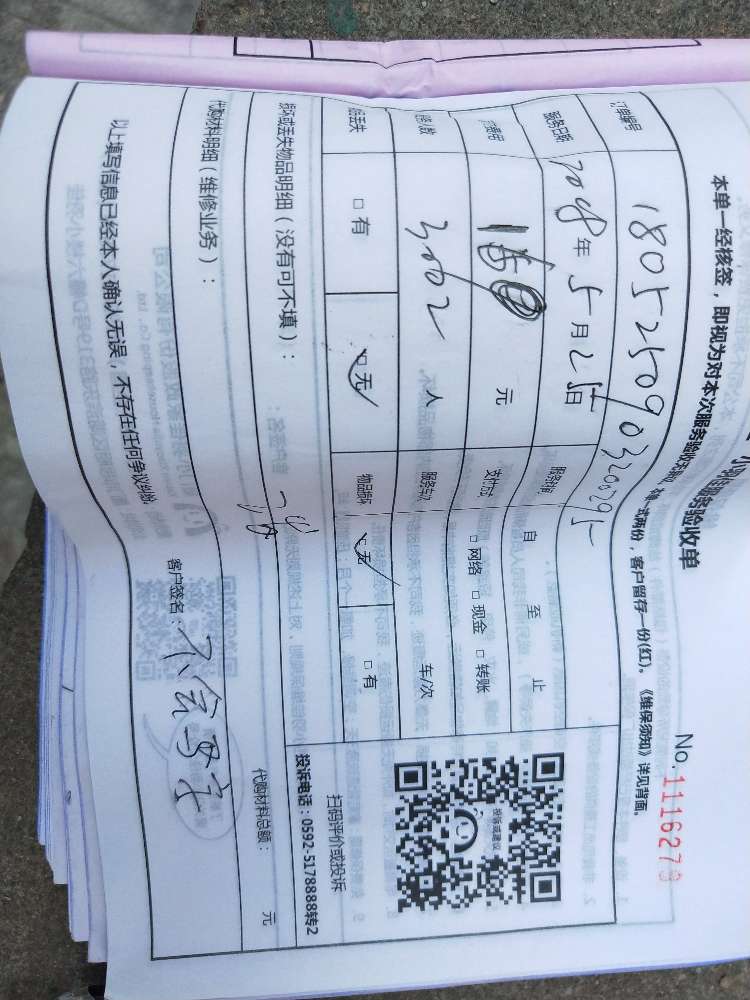 服务验收单
No.1116273
本单一经核签，即视为对本次服务验收无异议。本单一式两份，客户留存一份(红)。《维保须知》详见背面。
订单编号 180525090320295
服务日期 2018年5月25日 服务时间 自 至 止
元 支付方式 □网络 □现金 □转账
3人 服务车次 车/次
丢失 □有 □无 物品损坏 □无 □有
损坏或丢失物品明细（没有可不填）：
代购材料明细（维修业务）：
代购材料总额： 元
以上填写信息已经本人确认无误，不存在任何争议纠纷。
客户签名：不会写字
投诉或建议
扫码评价或投诉
投诉电话：0592-5178888转2